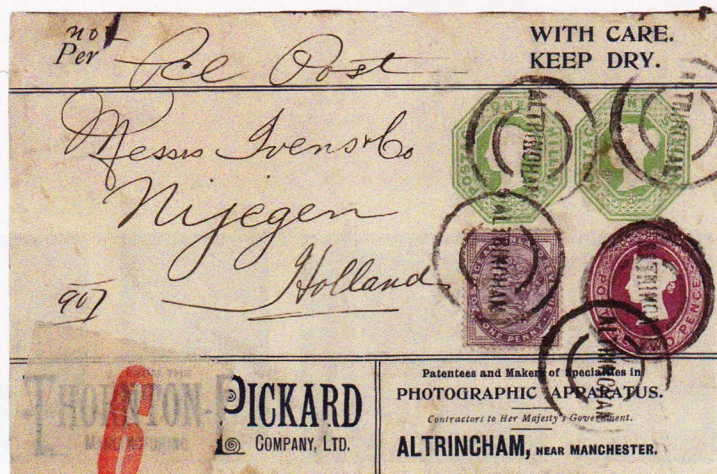 not
Per Pcl Post
WITH CARE.
KEEP DRY.
Messrs Ivens & Co
Nijegen
Holland
907
ONE
ALTRINCHAM
ALTRINCHAM
ALTRINCHAM
ALTRINCHAM
ONE PENNY
TWO PENCE
THORNTON-PICKARD
COMPANY, LTD.
Patentees and Makers of Specialties in
PHOTOGRAPHIC APPARATUS.
Contractors to Her Majesty's Government.
ALTRINCHAM, NEAR MANCHESTER.